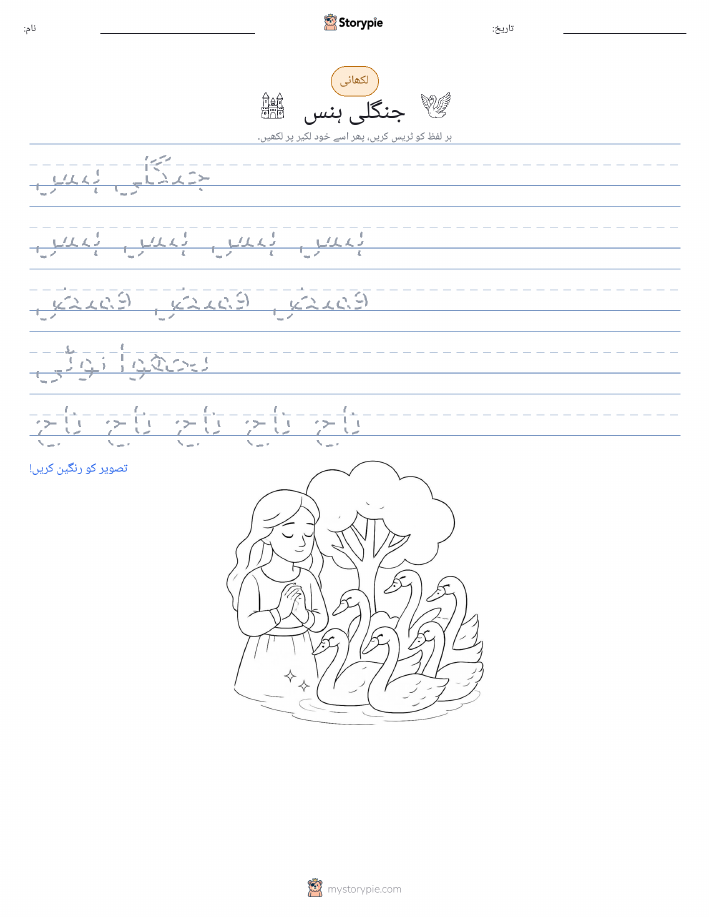 نام:
Storypie
تاریخ:
لکھائی
جنگلی ہنس
ہر لفظ کو ٹریس کریں، پھر اسے خود لکیر پر لکھیں۔
جنگلی ہنس
ہنس ہنس ہنس ہنس
قمیضیں قمیضیں قمیضیں
بچھوا بوٹی
تاج تاج تاج تاج تاج
تصویر کو رنگین کریں!
mystorypie.com